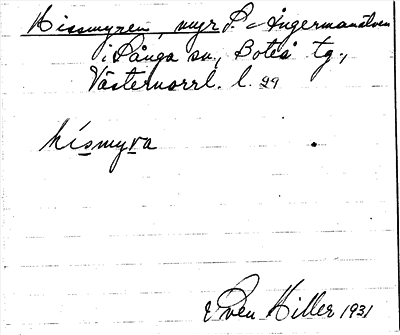 Kissmyren, myr S. Ångermanälven
i Långa sn, Boteå tg.,
Västernorrl. l. 29
kísmyra
Sven Hiller 1931